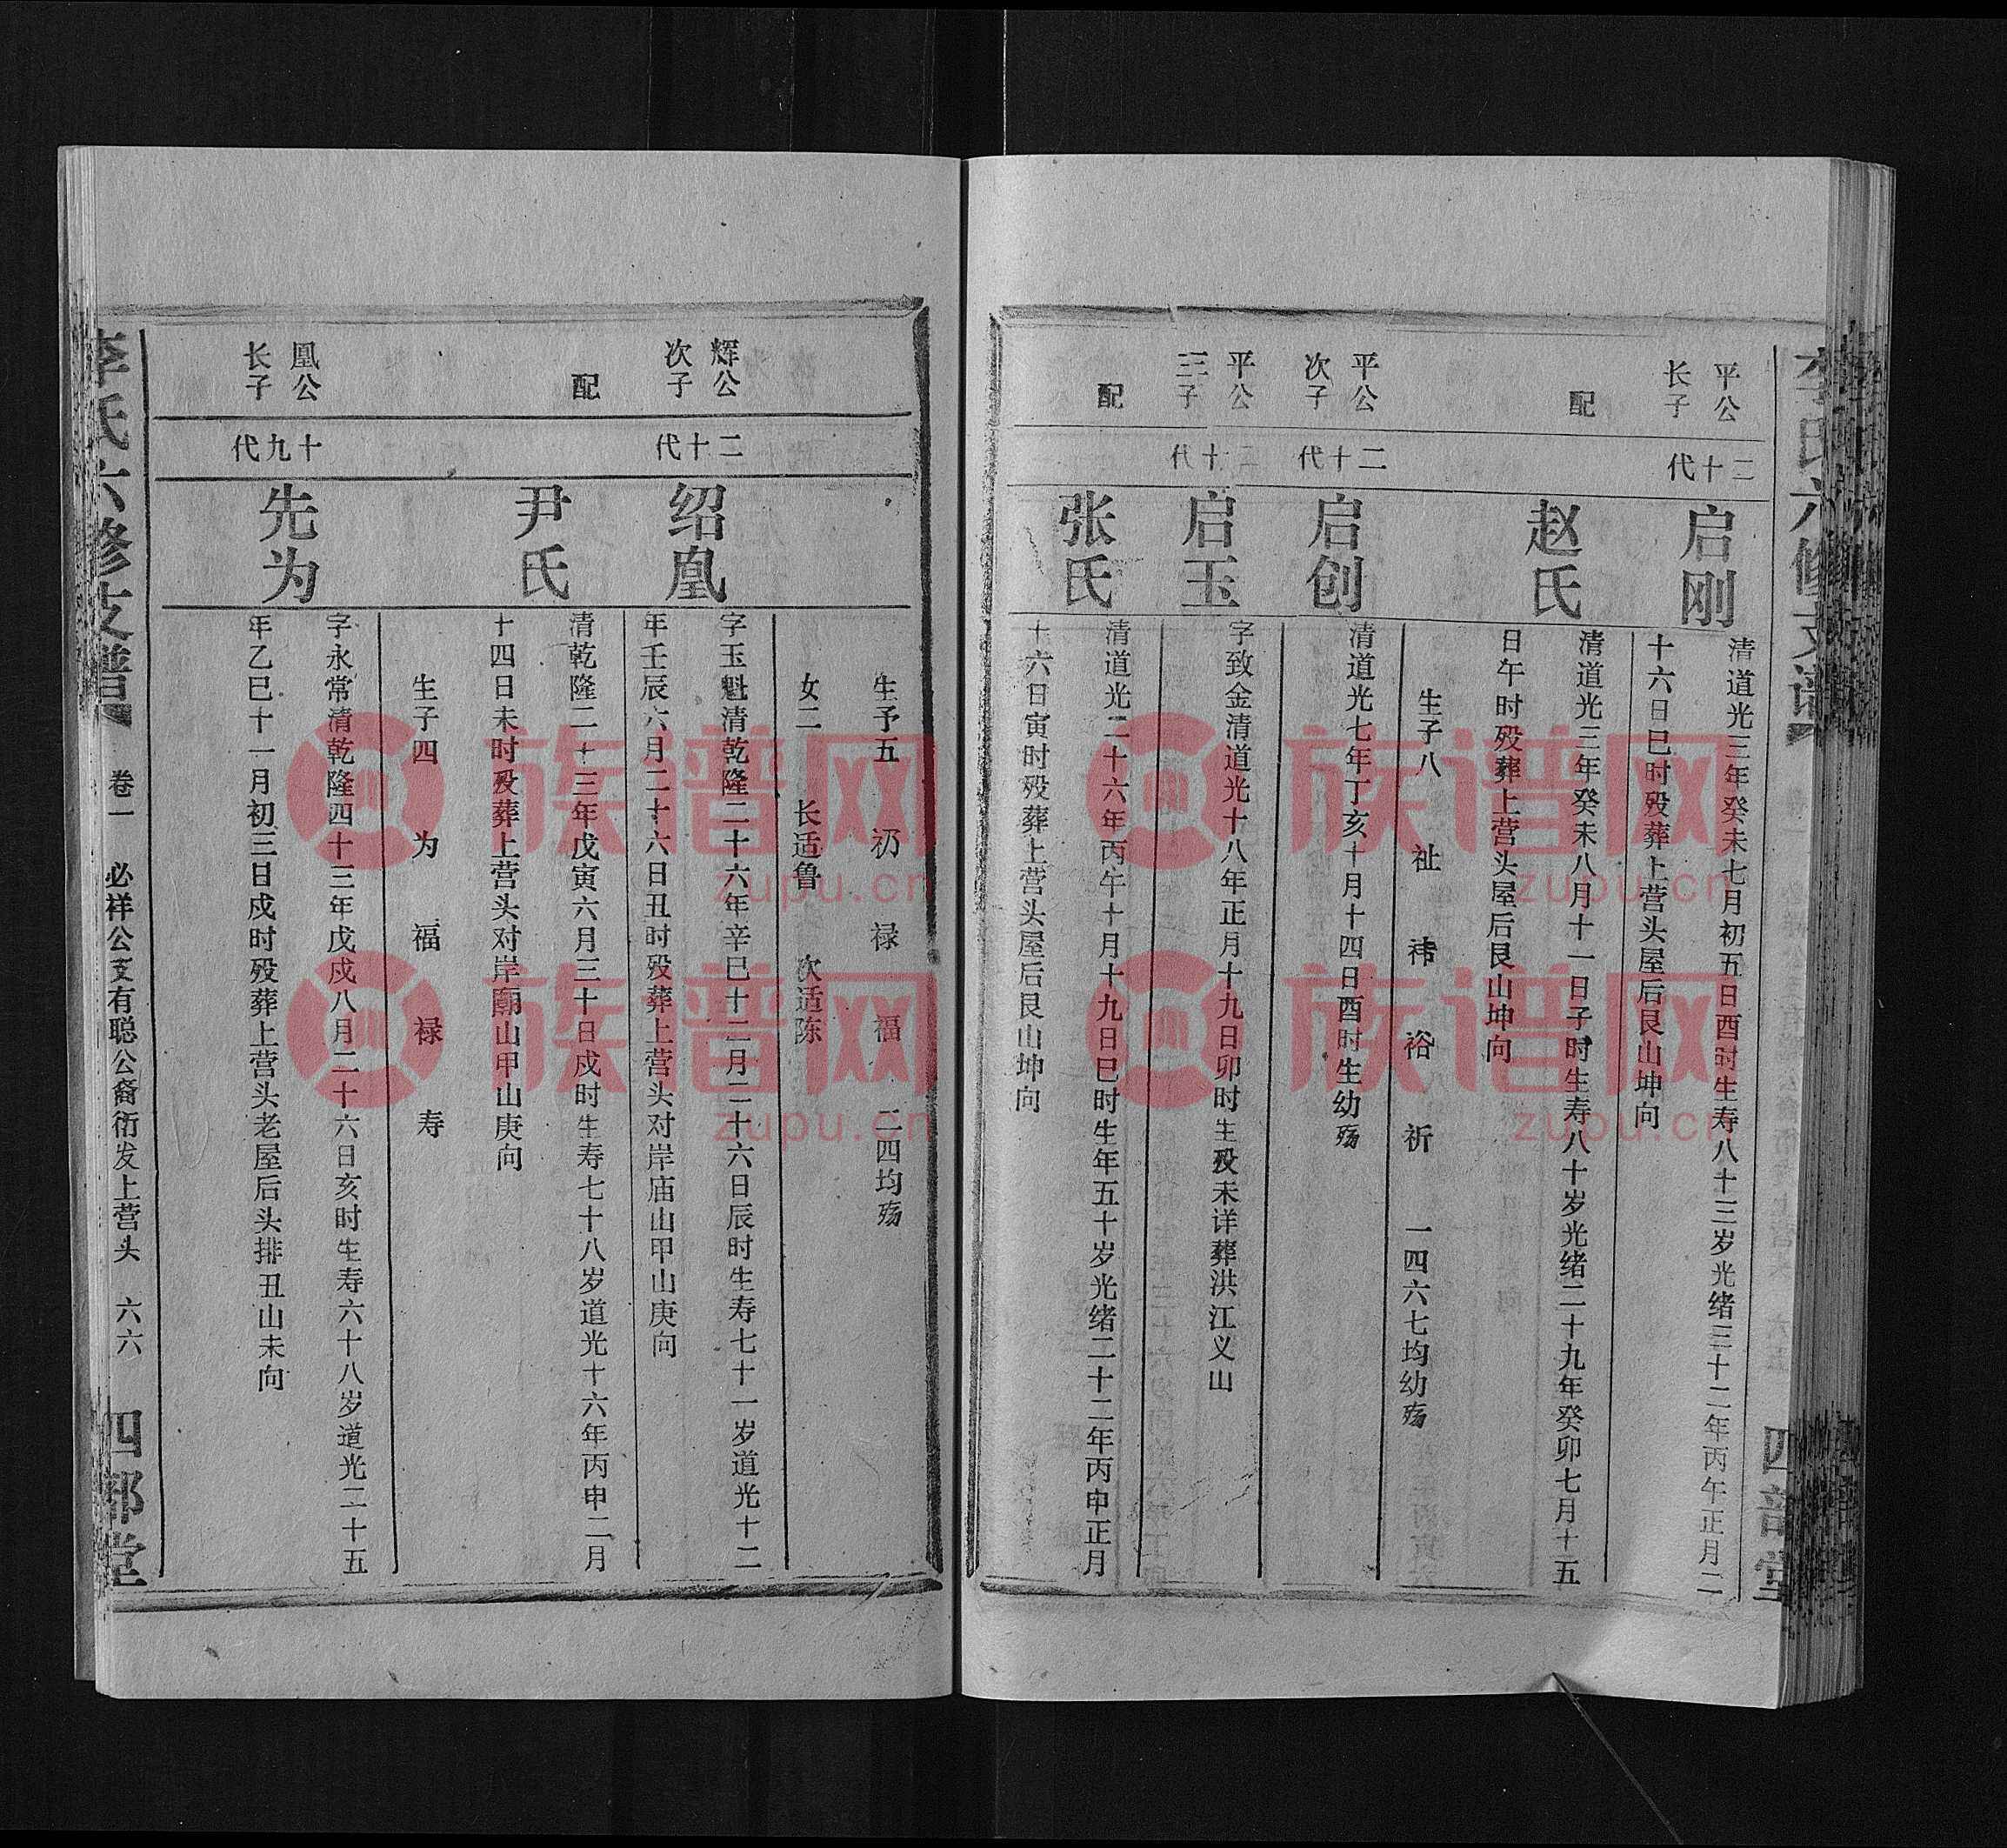 李氏六修支谱
四部堂
平公
长子
二十代
启刚
清道光三年癸未七月初五日酉时生寿八十三岁光绪三十二年丙午正月二
十六日巳时殁葬上营头屋后艮山坤向
配
赵氏
清道光三年癸未八月十一日子时生寿八十岁光绪二十九年癸卯七月十五
日午时殁葬上营头屋后艮山坤向
生子八 祉 祎 裕 祈 一四六七均幼殇
平公
次子
二十代
启创
清道光七年丁亥十月十四日酉时生幼殇
平公
三子
二十代
启玉
字致金清道光十八年正月十九日卯时生殁未详葬洪江义山
配
张氏
清道光二十六年丙午十月十九日巳时生年五十岁光绪二十二年丙申正月
十六日寅时殁葬上营头屋后艮山坤向
生予五 礽 禄 福 二四均殇
女二 长适鲁 次适陈
辉公
次子
二十代
绍凰
字玉魁清乾隆二十六年辛巳十二月二十六日辰时生寿七十一岁道光十二
年壬辰六月二十六日丑时殁葬上营头对岸庙山甲山庚向
配
尹氏
清乾隆二十三年戊寅六月三十日戌时生寿七十八岁道光十六年丙申二月
十四日未时殁葬上营头对岸庙山甲山庚向
生子四 为 福 禄 寿
凰公
长子
十九代
先为
字永常清乾隆四十三年戊戌八月二十六日亥时生寿六十八岁道光二十五
年乙巳十一月初三日戌时殁葬上营头老屋后头排丑山未向
李氏六修支谱
卷一 必祥公支有聪公裔衔发上营头 六六
四部堂
族谱网
zupu.cn
族谱网
zupu.cn
族谱网
zupu.cn
族谱网
zupu.cn